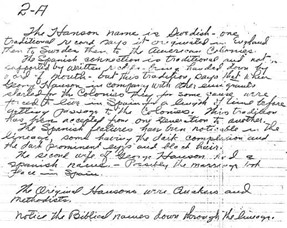 2-A
The Hanson name is Swedish - one
traditional record says it originated in England
then to Sweden then to the American Colonies.
The Spanish connection is traditional and not
supported by written records - being handed down by
word of mouth - but this tradition says that when
George Hanson in company with other emigrants
headed for the Colonies they for some cause were
forced to live in Spain for a length of time before
getting passage to the Colonies. This tradition
have been accepted from one generation to another.
The Spanish features have been noticeable in the
lineage some having the dark complexion and
the dark prominent eyes and black hair.
The second wife of George Hanson had a
Spanish name - the marriage took
Place in Spain.
The Original Hansons were Quakers and
Methodists.
Notice the Biblical names down through the lineage.